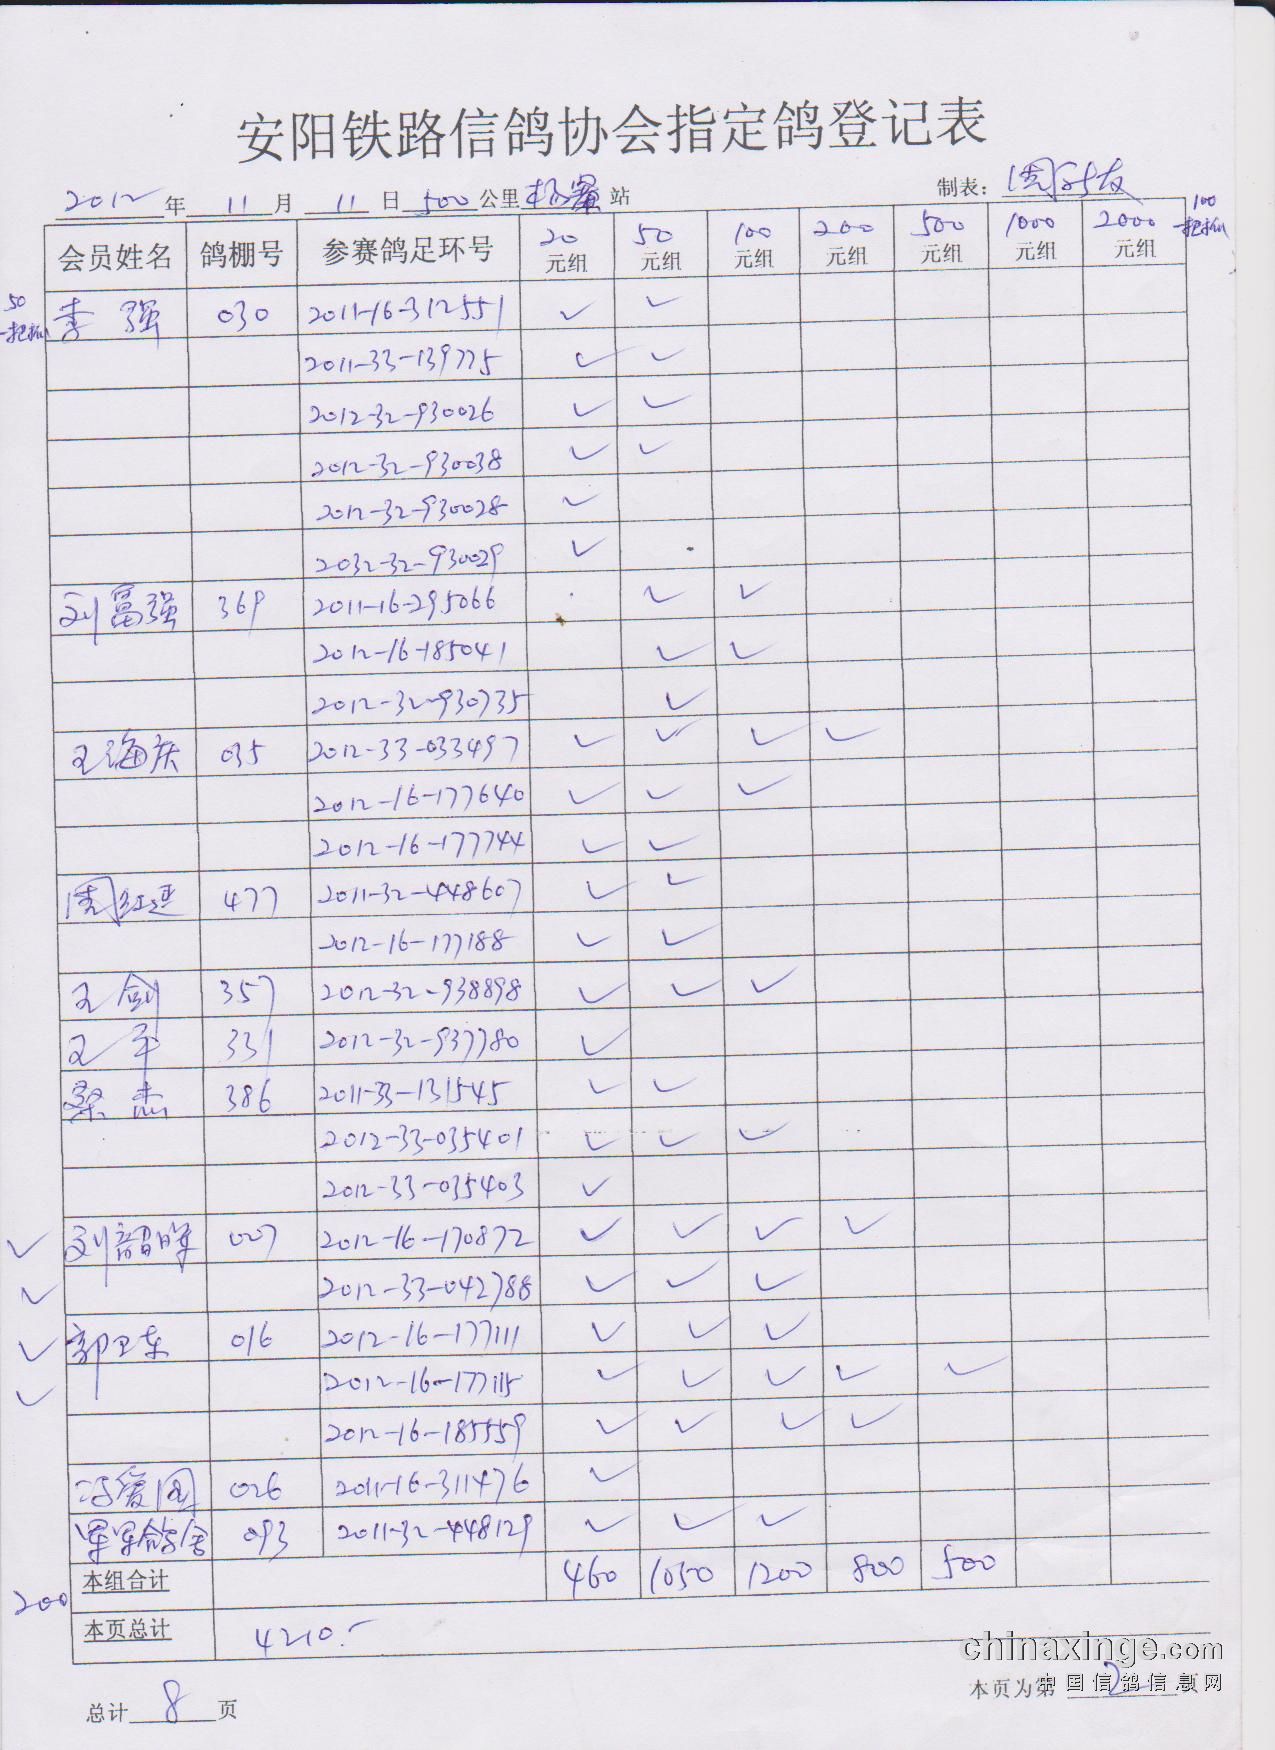 安阳铁路信鸽协会指定鸽登记表
2012年 11月 11日 500公里 站 制表: 周
会员姓名 鸽棚号 参赛鸽足环号 20元组 50元组 100元组 200元组 500元组 1000元组 2000元组 100
50
李强 030 2011-16-312551 ✓ ✓
2011-33-139775 ✓ ✓
2012-32-930026 ✓ ✓
2012-32-930038 ✓ ✓
2012-32-930028 ✓
2032-32-930029 ✓
刘富强 369 2011-16-295066 ✓ ✓
2012-16-185041 ✓ ✓
2012-32-930735 ✓
王海庆 035 2012-33-033497 ✓ ✓ ✓ ✓
2012-16-177640 ✓ ✓ ✓
2012-16-177744 ✓ ✓
周红建 477 2011-32-448607 ✓ ✓
2012-16-177188 ✓ ✓
王剑 357 2012-32-938898 ✓ ✓ ✓
王平 331 2012-32-937780 ✓
桑杰 386 2011-33-131545 ✓ ✓
2012-33-035401 ✓ ✓ ✓
2012-33-035403 ✓
✓ 刘韶晖 007 2012-16-170872 ✓ ✓ ✓ ✓
✓ 2012-33-042788 ✓ ✓ ✓
✓ 郭卫东 016 2012-16-177111 ✓ ✓ ✓
✓ 2012-16-177115 ✓ ✓ ✓ ✓ ✓
2012-16-185559 ✓ ✓ ✓ ✓
冯爱国 026 2011-16-311476 ✓
军军鸽舍 093 2011-32-448129 ✓ ✓ ✓
本组合计 460 1050 1200 800 500
200
本页总计 4210.-
chinaxinge.com
中国信鸽信息网
总计 8 页 本页为第 2 页